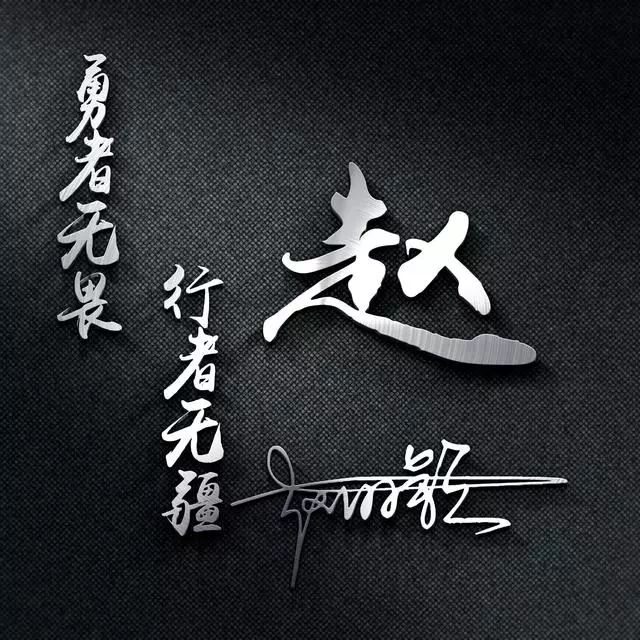 勇者无畏
行者无疆
赵